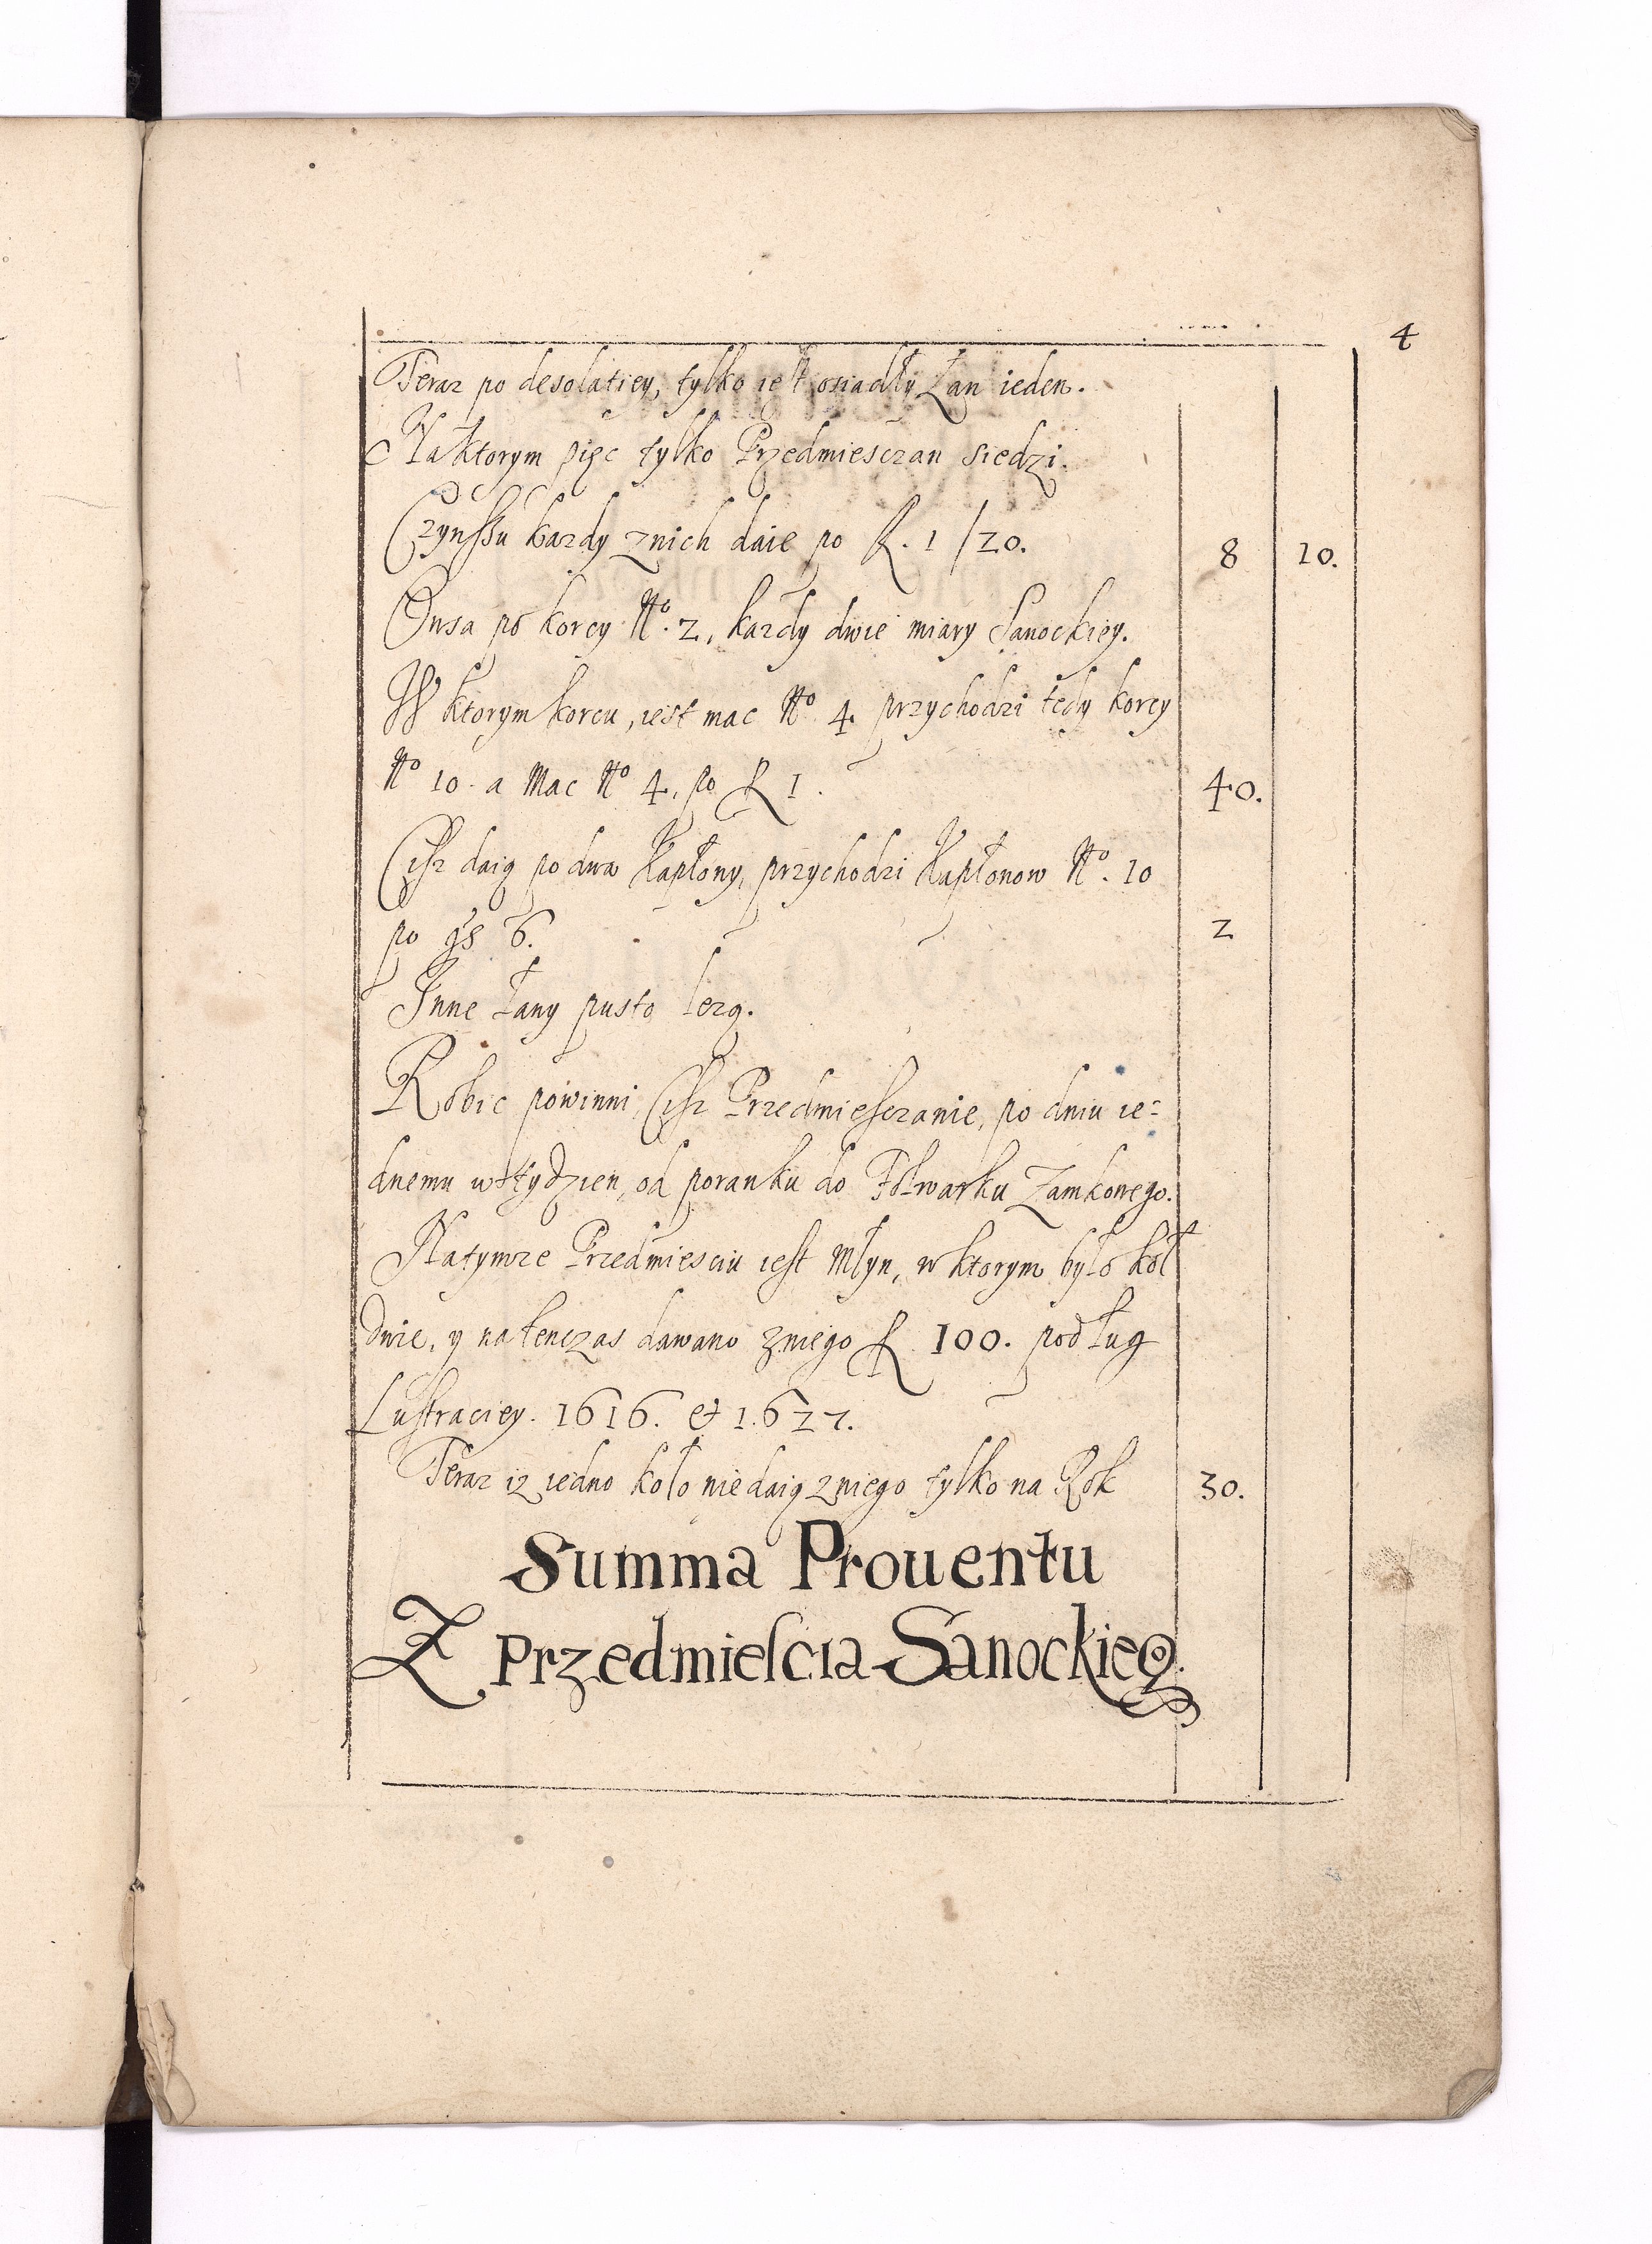 4
Teraz po desolatiey, tylko iest osiadły Łan ieden.
Na ktorym pięc tylko Przedmiesczan siedzi.
Czynszu kazdy znich daie po f. 1/20. 8 10.
Owsa po korcy No. 2, kazdy dwie miary Sanockiey.
W ktorym korcu, iest mac No 4 przychodzi tedy korcy
No 10. a Mac No 4. po f 1. 40.
Cisz daią po dwa Kapłony, przychodzi Kapłonow No. 10
po gs 6. 2
Inne Łany pusto lezą.
Robic powinni Cisz Przedmiesczanie, po dniu ie=
dnemu w tydzien, od poranku do Folwarku Zamkowego.
Na tymze Przedmiesciu iest Młyn, w ktorym było koł
dwie, y na tenczas dawano zniego f. 100. podług
Lustraciey. 1616. et 1627.
Teraz iz iedno koło nie daią zniego tylko na Rok 30.
Summa Prouentu
Z Przedmiescia Sanockieg°